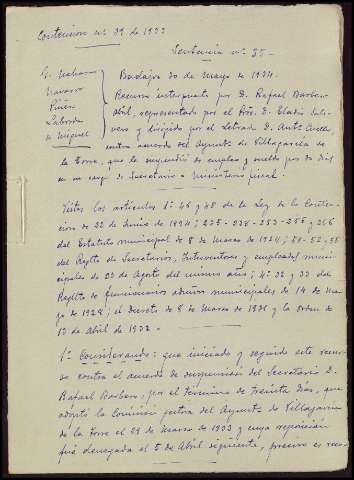 Contencioso nº 39 de 1933
Sentencia nº 35-
Badajoz 30 de Mayo de 1934.
Navarro
Piñen
Laborda
de Miguel
Recurso interpuesto por D. Rafael Barbero
Abril, representado por el Pdor. D. Eladio
y dirigido por el Letrado D. Antº
contra acuerdo del Ayuntº de Villagarcia de
la Torre, que le suspendió de empleo y sueldo por 30 dias
en su cargo de Secretario = Ministerio fiscal.
Vistos los articulos 1º 46 y 48 de la Ley de lo Conten-
cioso de 22 de Junio de 1894; 235-238-253-255 y 256
del Estatuto municipal de 8 de Marzo de 1924; 52-55
del Reglto de Secretarios, Interventores y empleados muni-
cipales de 23 de Agosto del mismo año; 4º 32 y 33 del
Reglto de funcionarios municipales de 14 de Ma-
yo de 1928; el decreto de 8 de Marzo de 1931 y la orden de
12 de Abril de 1932.
1º Considerando: que iniciado y seguido este recur-
so contra el acuerdo de suspension del Secretario D.
Rafael Barbero, por el término de treinta dias, que
adoptó la Comision gestora del Ayuntº de Villagarcia
de la Torre el 29 de Marzo de 1933 y cuya reposición
fué denegada el 5 de Abril siguiente, preciso es reco-